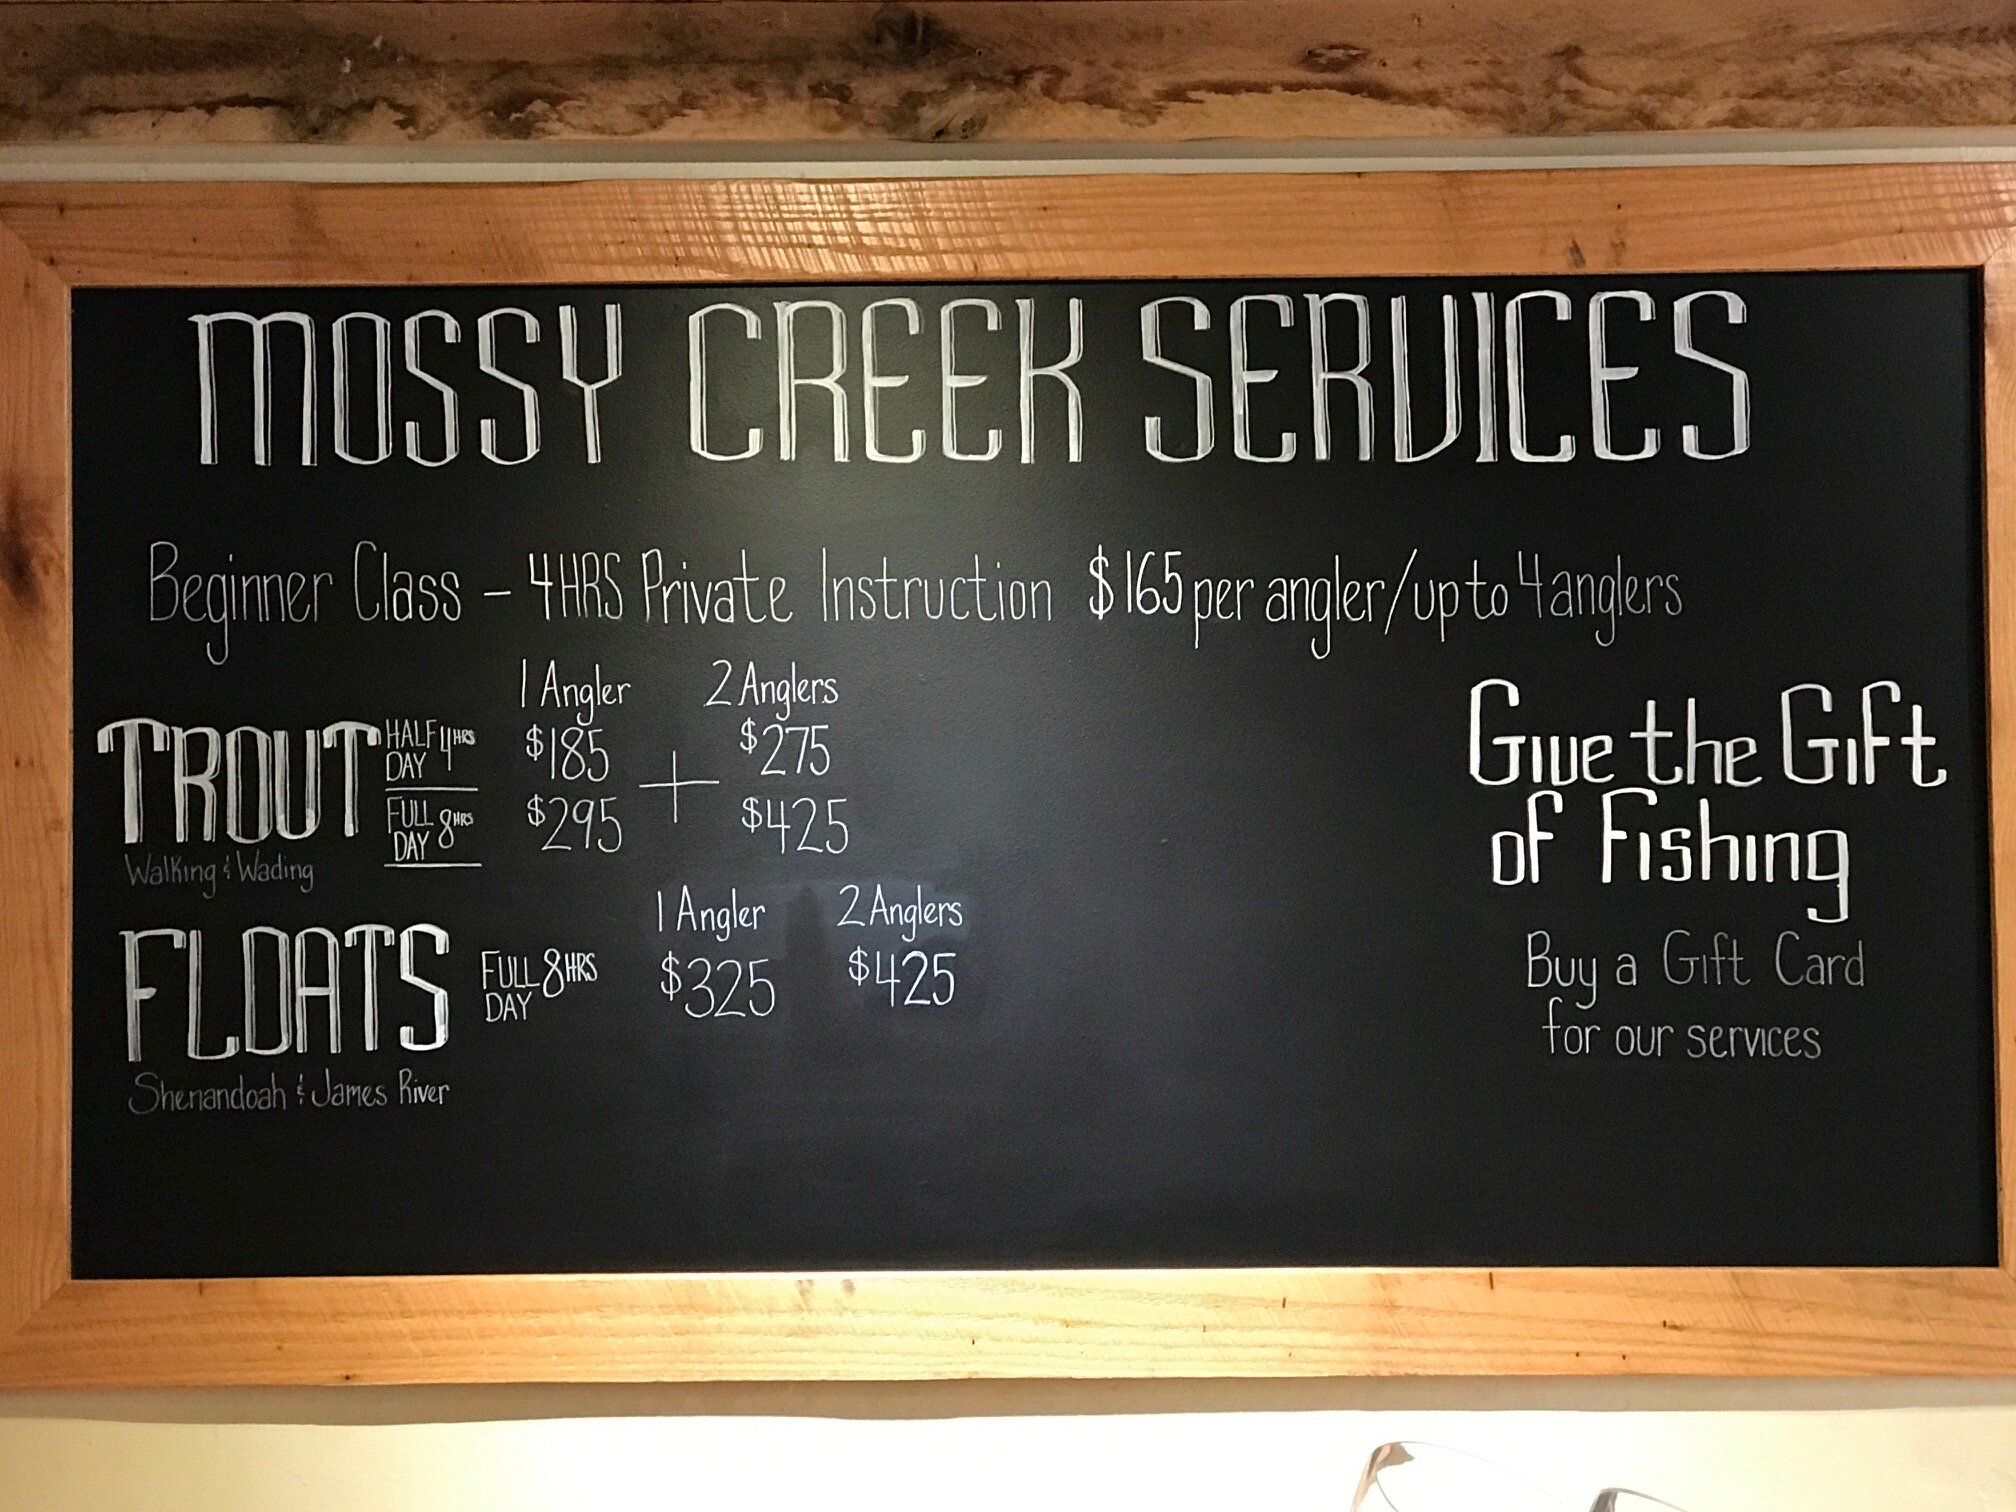 MOSSY CREEK SERVICES
Beginner Class - 4HRS Private Instruction $165 per angler/up to 4 anglers
1 Angler 2 Anglers
TROUT HALF DAY 4HRS $185 + $275
FULL DAY 8HRS $295 $425
Walking & Wading
1 Angler 2 Anglers
FLOATS FULL DAY 8HRS $325 $425
Shenandoah & James River
Give the Gift
of Fishing
Buy a Gift Card
for our services